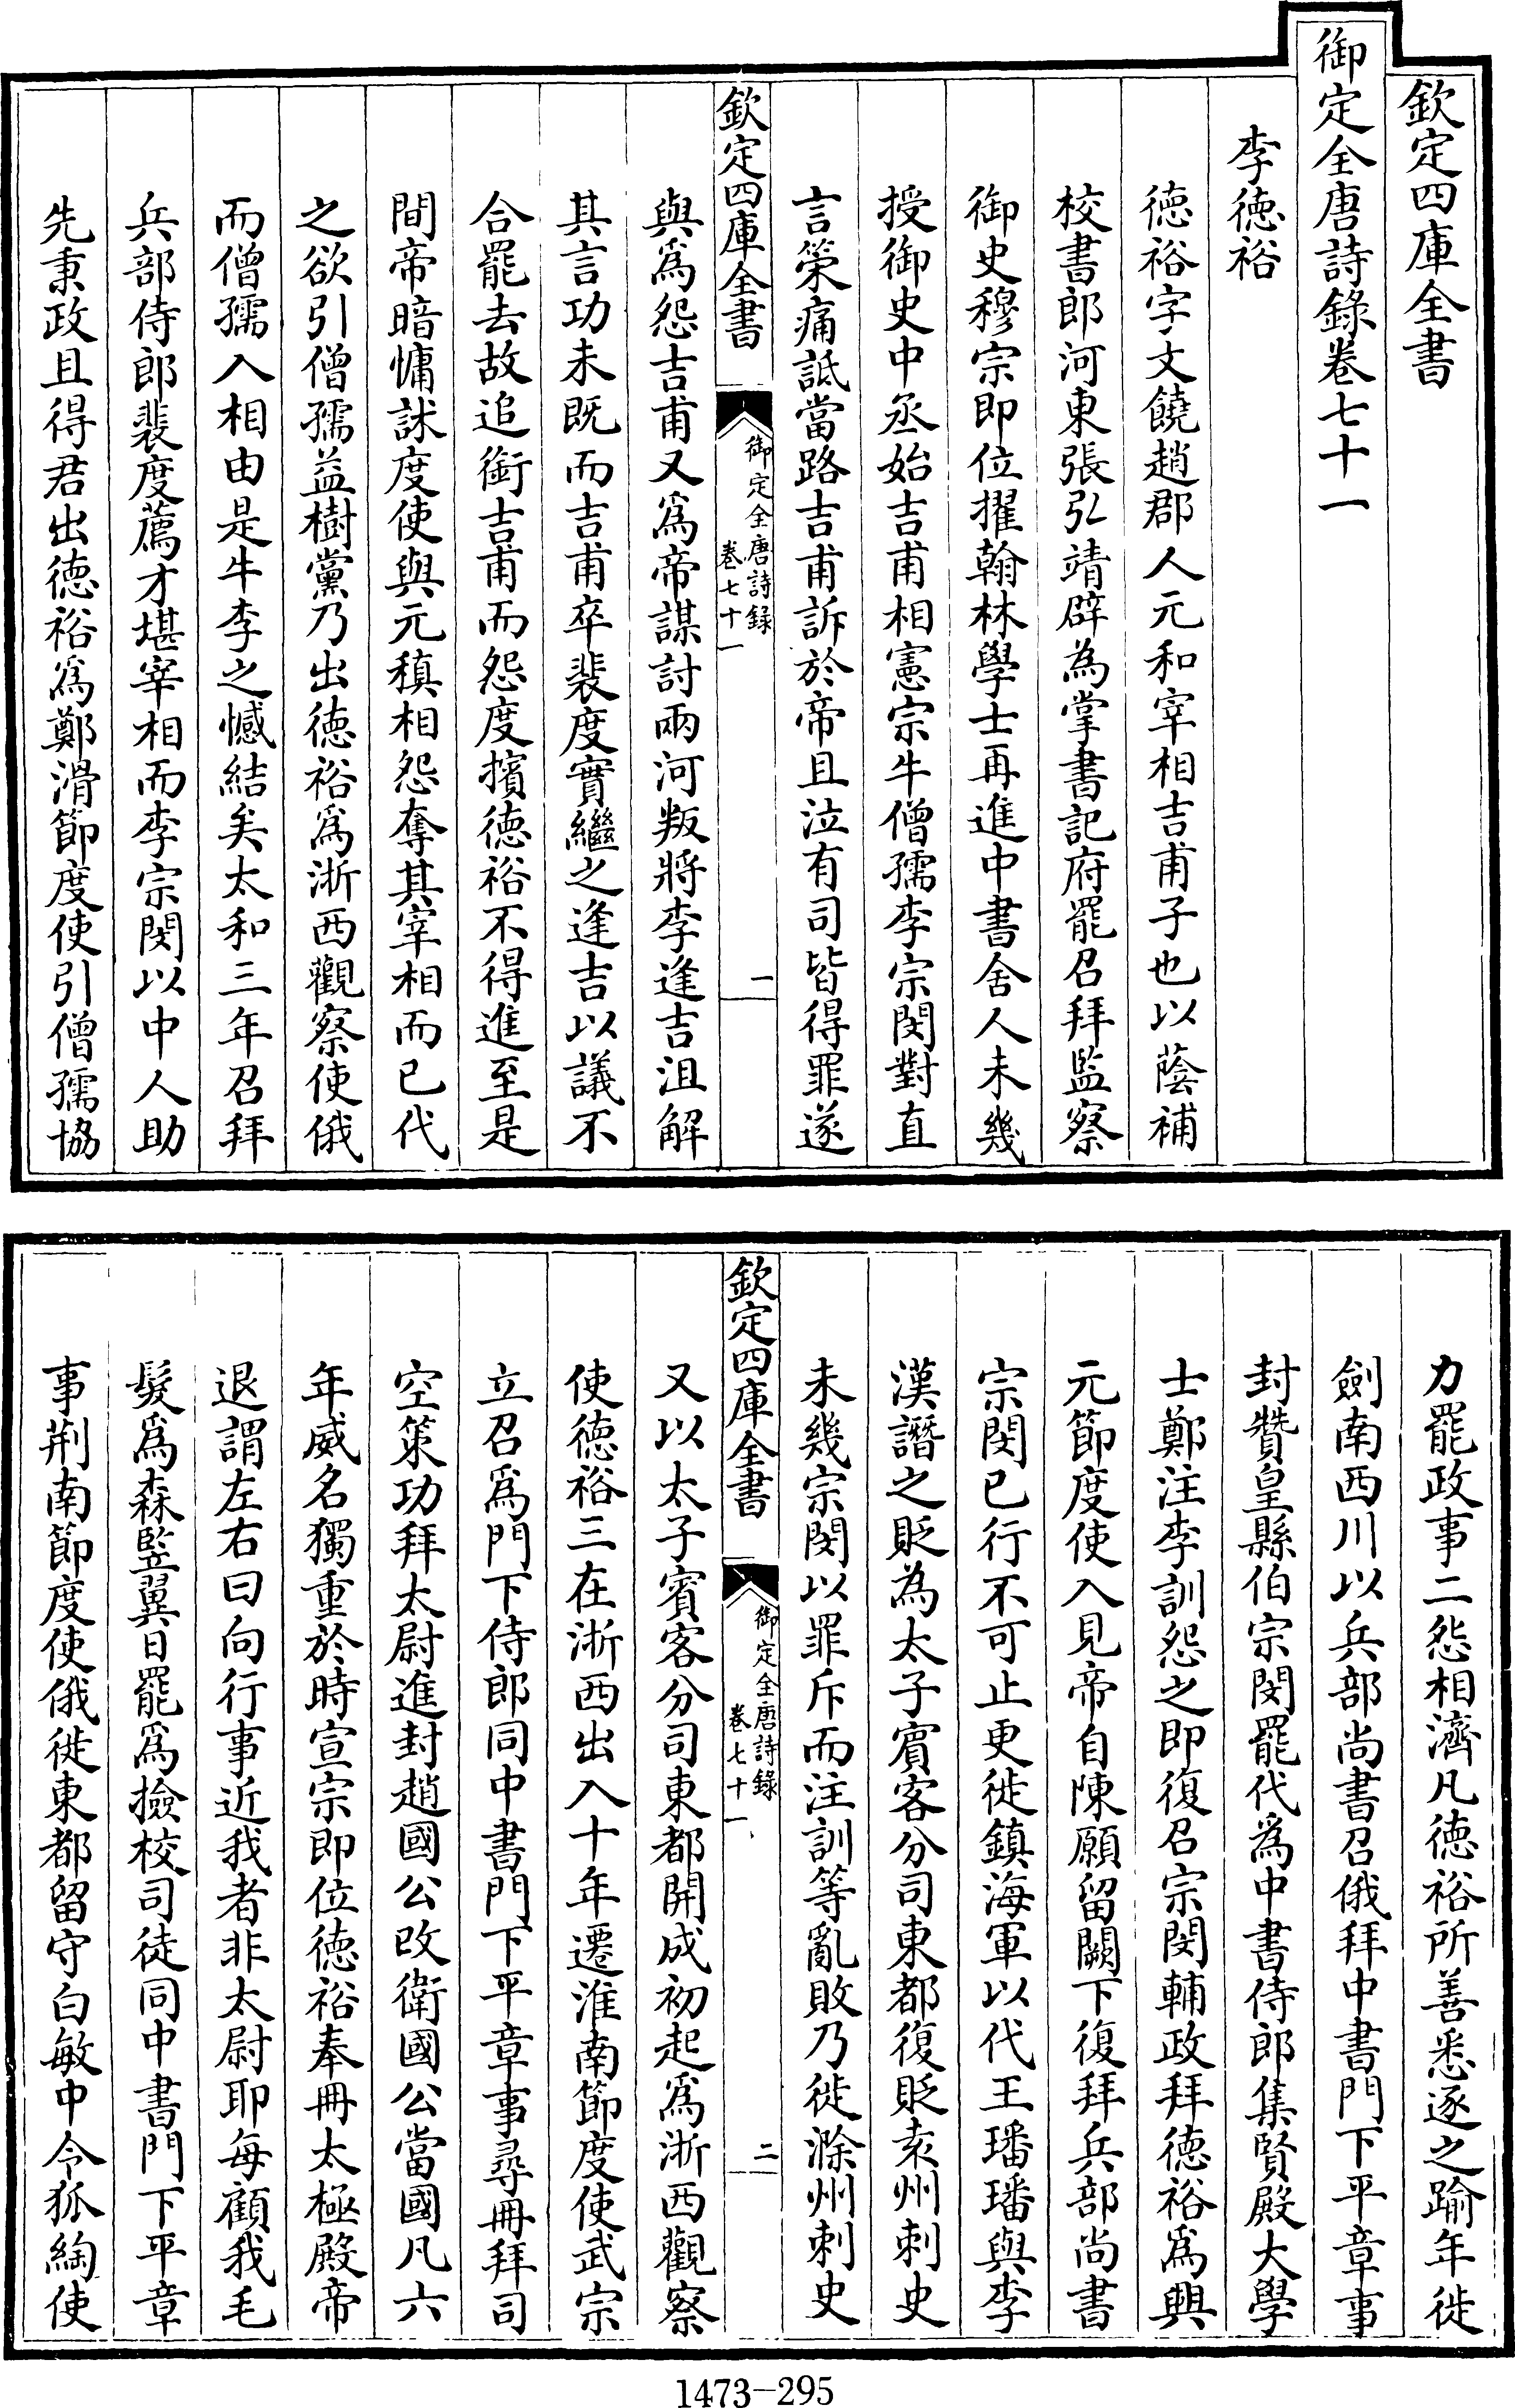 欽定四庫全書
御定全唐詩錄卷七十一
李德裕
德裕字文饒趙郡人元和宰相吉甫子也以蔭補
校書郎河東張弘靖辟為掌書記府罷召拜監察
御史穆宗即位擢翰林學士再進中書舍人未幾
授御史中丞始吉甫相憲宗牛僧孺李宗閔對直
言策痛詆當路吉甫訴於帝且泣有司皆得罪遂
欽定四庫全書
御定全唐詩錄
卷七十一
一
與爲怨吉甫又爲帝謀討兩河叛將李逢吉沮解
其言功未既而吉甫卒裴度實繼之逢吉以議不
合罷去故追銜吉甫而怨度擯德裕不得進至是
間帝暗慵訹度使與元稹相怨奪其宰相而已代
之欲引僧孺益樹黨乃出德裕爲浙西觀察使俄
而僧孺入相由是牛李之憾結矣太和三年召拜
兵部侍郎裴度薦才堪宰相而李宗閔以中人助
先秉政且得君出德裕爲鄭滑節度使引僧孺協
力罷政事二怨相濟凡德裕所善悉逐之踰年徙
劍南西川以兵部尚書召俄拜中書門下平章事
封贊皇縣伯宗閔罷代爲中書侍郎集賢殿大學
士鄭注李訓怨之即復召宗閔輔政拜德裕爲興
元節度使入見帝自陳願留闕下復拜兵部尚書
宗閔已行不可止更徙鎮海軍以代王璠璠與李
漢譖之貶為太子賓客分司東都復貶袁州刺史
未幾宗閔以罪斥而注訓等亂敗乃徙滁州刺史
欽定四庫全書
御定全唐詩錄
卷七十一
二
又以太子賓客分司東都開成初起爲浙西觀察
使德裕三在浙西出入十年遷淮南節度使武宗
立召爲門下侍郎同中書門下平章事尋冊拜司
空策功拜太尉進封趙國公改衛國公當國凡六
年威名獨重於時宣宗即位德裕奉冊太極殿帝
退謂左右曰向行事近我者非太尉耶每顧我毛
髮爲森豎翼日罷爲撿校司徒同中書門下平章
事荆南節度使俄徙東都留守白敏中令狐綯使
1473-295